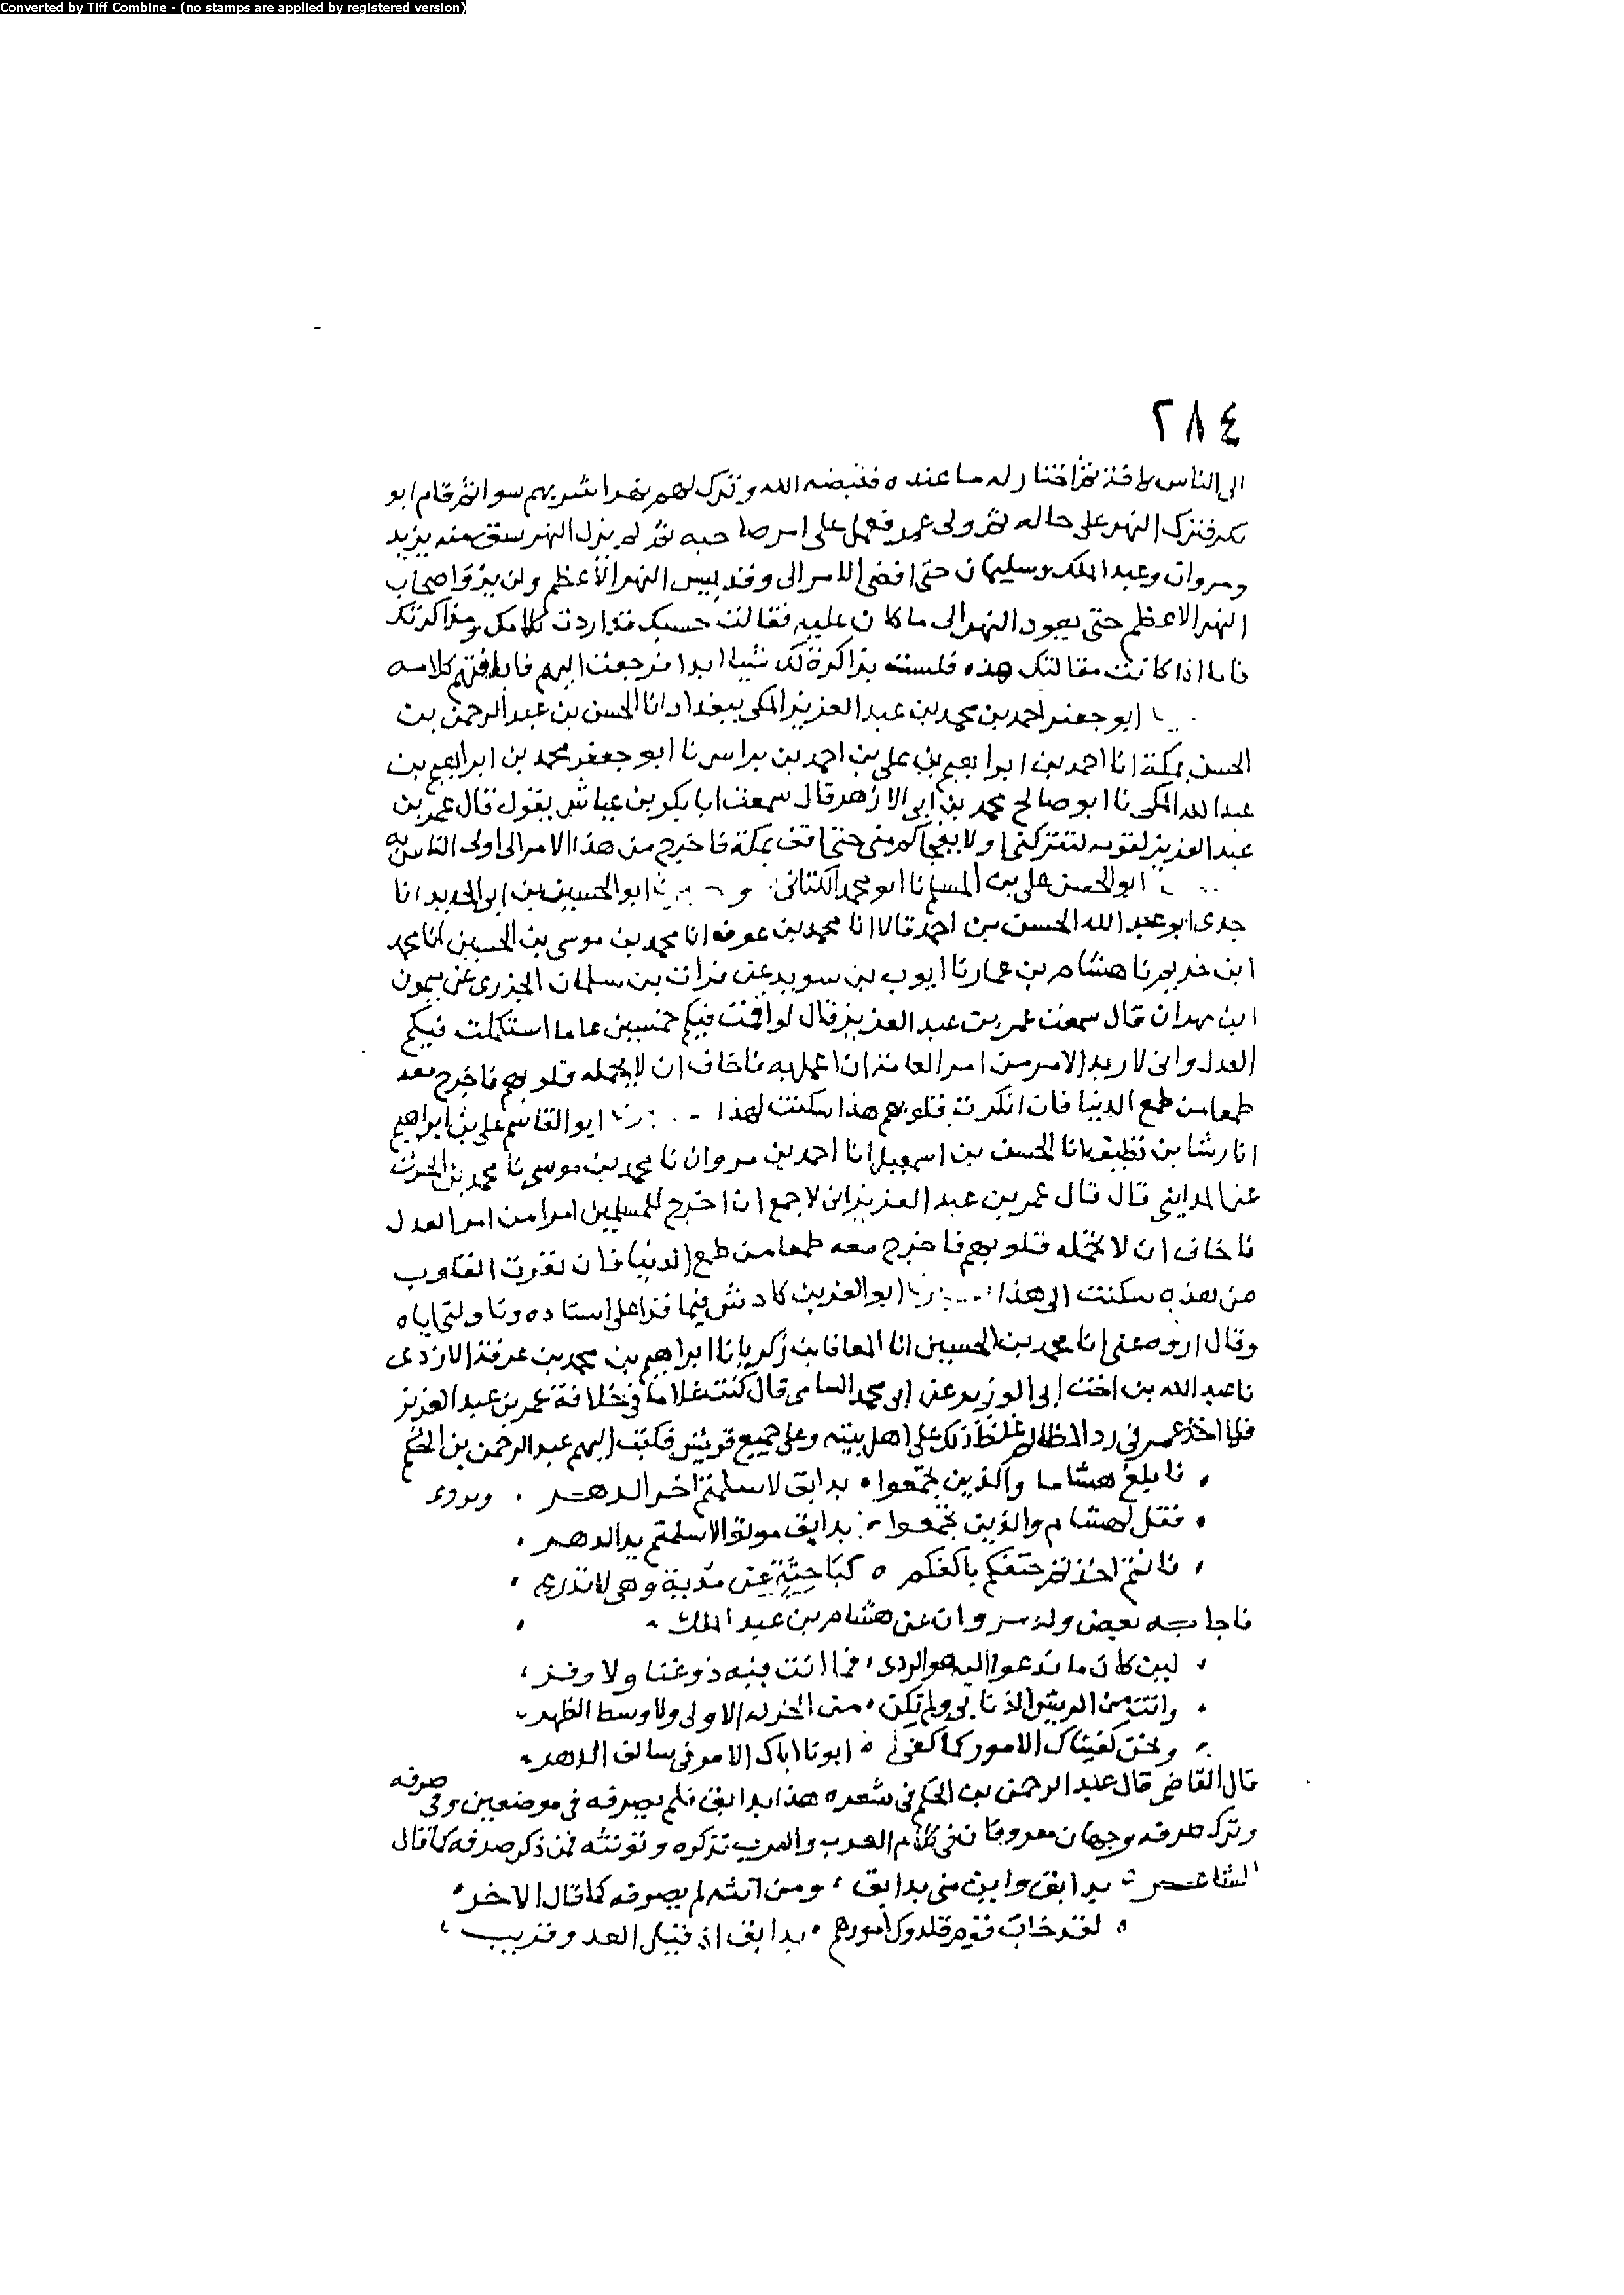 Converted by Tiff Combine - (no stamps are applied by registered version)
٢٨٤
الى الناس كافة ثم اختار له ما عنده فقبضه الله وترك لهم نهرا شربهم سوا ثم قام ابو
بكر فترك النهر على حاله ثم ولى عمر فعمل على امر صاحبه ثم لم يزل النهر يشق منه يزيد
ومروان وعبد الملك وسليمان حتى افضى الامر الى وقد يبس النهر الأعظم ولن يرو اصحاب
النهر الاعظم حتى يعود النهر الى ما كان عليه فقالت حسبك قد اردت كلامك ومذاكرتك
فاما اذا كانت مقالتك هذه فلست بذاكرة لك شيئا ابدا فرجعت اليهم فابلغتهم كلامه
ابو جعفر احمد بن محمد بن عبد العزيز المكى ببغداد انا الحسن بن عبد الرحمن بن
الحسن بمكة انا احمد بن ابراهيم بن على بن احمد بن فراس نا ابو جعفر محمد بن ابراهيم بن
عبد الله المكى نا ابو صالح محمد بن ابى الازهر قال سمعت ابا بكر بن عياش يقول قال عمر بن
عبد العزيز لقومه لتتركنى او لا يفجاكم منى حتى اقف بمكة فاخرج من هذا الامر الى اولى الناس به
ابو الحسن على بن المسلم نا ابو محمد الكتانى و ابو الحسين بن ابى الحديد انا
جدى ابو عبد الله الحسن بن احمد قالا انا محمد بن عوف انا محمد بن موسى بن الحسين انا محمد
ابن خريم نا هشام بن عمار نا ايوب بن سويد عن فرات بن سلمان الجزرى عن ميمون
ابن مهران قال سمعت عمر بن عبد العزيز قال لو اقمت فيكم خمسين عاما استكملت فيكم
العدل وانى لاريد الامر من امر العامة ان اعمل به فاخاف ان لا تحمله قلوبهم فاخرج معه
طمعا من طمع الدنيا فان انكرت قلوبهم هذا سكنت لهذا ابو القاسم على بن ابراهيم
انا رشا بن نظيف انا الحسن بن اسمعيل انا احمد بن مروان نا محمد بن موسى نا محمد بن الحرث
عن المداينى قال قال عمر بن عبد العزيز انى لاجمع ان اخرج للمسلمين امرا من امر العدل
فاخاف ان لا تحمله قلوبهم فاخرج معه طمعا من طمع الدنيا فان نفرت القلوب
من هذه سكنت الى هذا ابو العز بن كادش فيما قرا على استاده وناولنى اياه
وقال اروه عنى انا محمد بن الحسين انا المعافا بن زكريا نا ابراهيم بن محمد بن عرفة الازدى
نا عبد الله بن اخت ابى الوزير عن ابى محمد السامى قال كنت غلاما فى خلافة عمر بن عبد العزيز
فلما اخذ عمر فى رد المظالم غلظ ذلك على اهل بيته وعلى جميع قريش فكتب اليهم عبد الرحمن بن الحكم
فابلغ هشاما والذين تجمعوا بدابق لا سلمتم اخر الدهر ويروى
فقل لهشام والذين تجمعوا بدابق موتوا لا سلمتم يد الدهر
فانتم اخذتم حتفكم باكفكم كباحثة عن مدية وهى لا تدرى
فاجابه بعض ولد مروان عن هشام بن عبد الملك
لين كان ما تدعوا اليه هو الردى فما انت فيه ذو غنا ولا وفر
وانت من الريش الذنابى ولم تكن من الجزلة الاولى ولا وسط الظهر
ونحن كفيناك الامور كما كفى ابونا اباك الامر فى سالف الدهر
قال القاضى قال عبد الرحمن بن الحكم فى شعره هذا بدابق فلم يصرفه فى موضعين وفى صرفه
وترك صرفه وجهان معروفان فى كلام العرب والعرب تذكره وتونثه فمن ذكر صرفه كما قال
الشاعر بدابق واين منى بدابق ومن انثه لم يصرفه كما قال الاخر
لقد خاب قوم قلدوك امورهم بدابق اذ قيل العدو قريب